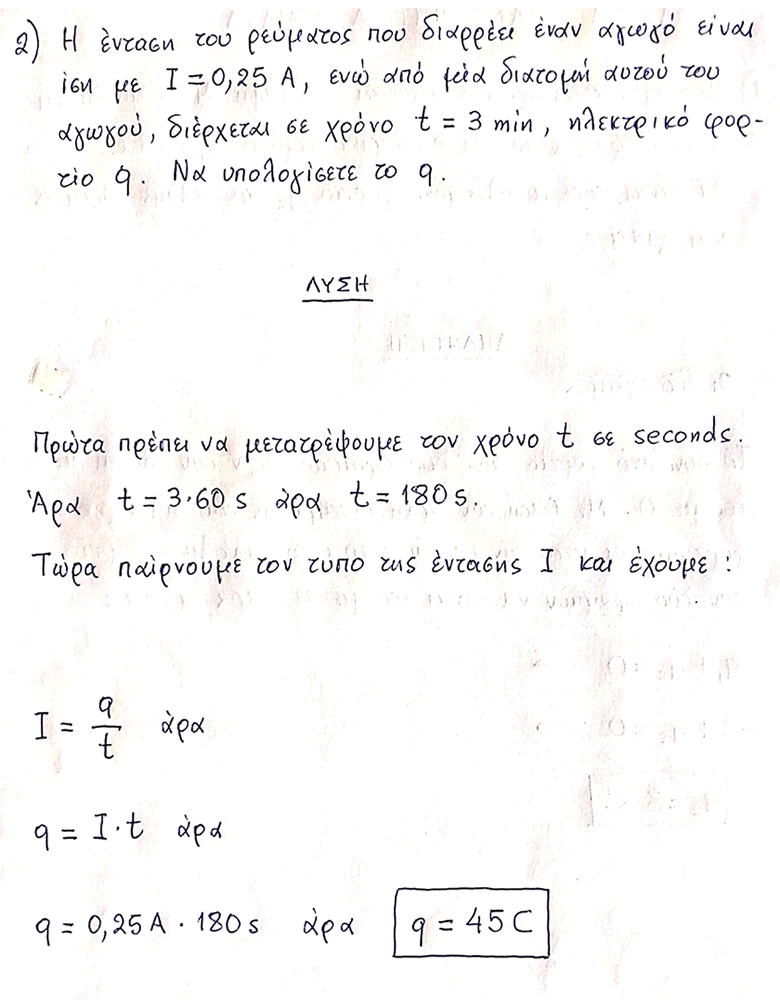 2) Η ένταση του ρεύματος που διαρρέει έναν αγωγό είναι
ίση με I = 0,25 A, ενώ από μία διατομή αυτού του
αγωγού, διέρχεται σε χρόνο t = 3 min, ηλεκτρικό φορ-
τίο q. Να υπολογίσετε το q.
ΛΥΣΗ
Πρώτα πρέπει να μετατρέψουμε τον χρόνο t σε seconds.
Άρα t = 3·60 s άρα t = 180 s.
Τώρα παίρνουμε τον τυπο της έντασης I και έχουμε :
I = q/t άρα
q = I·t άρα
q = 0,25 A · 180 s άρα q = 45 C